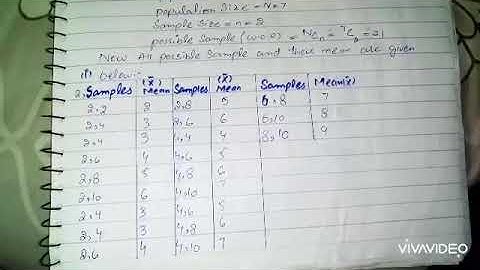 Population Size = N = 7
Sample Size = n = 2
possible Sample (w.o.r) = NCn = 7C2 = 21
Now All possible Sample and their mean are given
below:
Samples (x̄) Mean Samples (x̄) Mean Samples Mean(x̄)
2,2 2 2,8 5 6,8 7
2,4 3 2,10 6 6,10 8
2,4 3 4,4 4 8,10 9
2,6 4 4,6 5
2,8 5 4,8 6
2,10 6 4,10 7
2,4 3 4,6 5
2,4 3 4,8 6
2,6 4 4,10 7
VIVAVIDEO